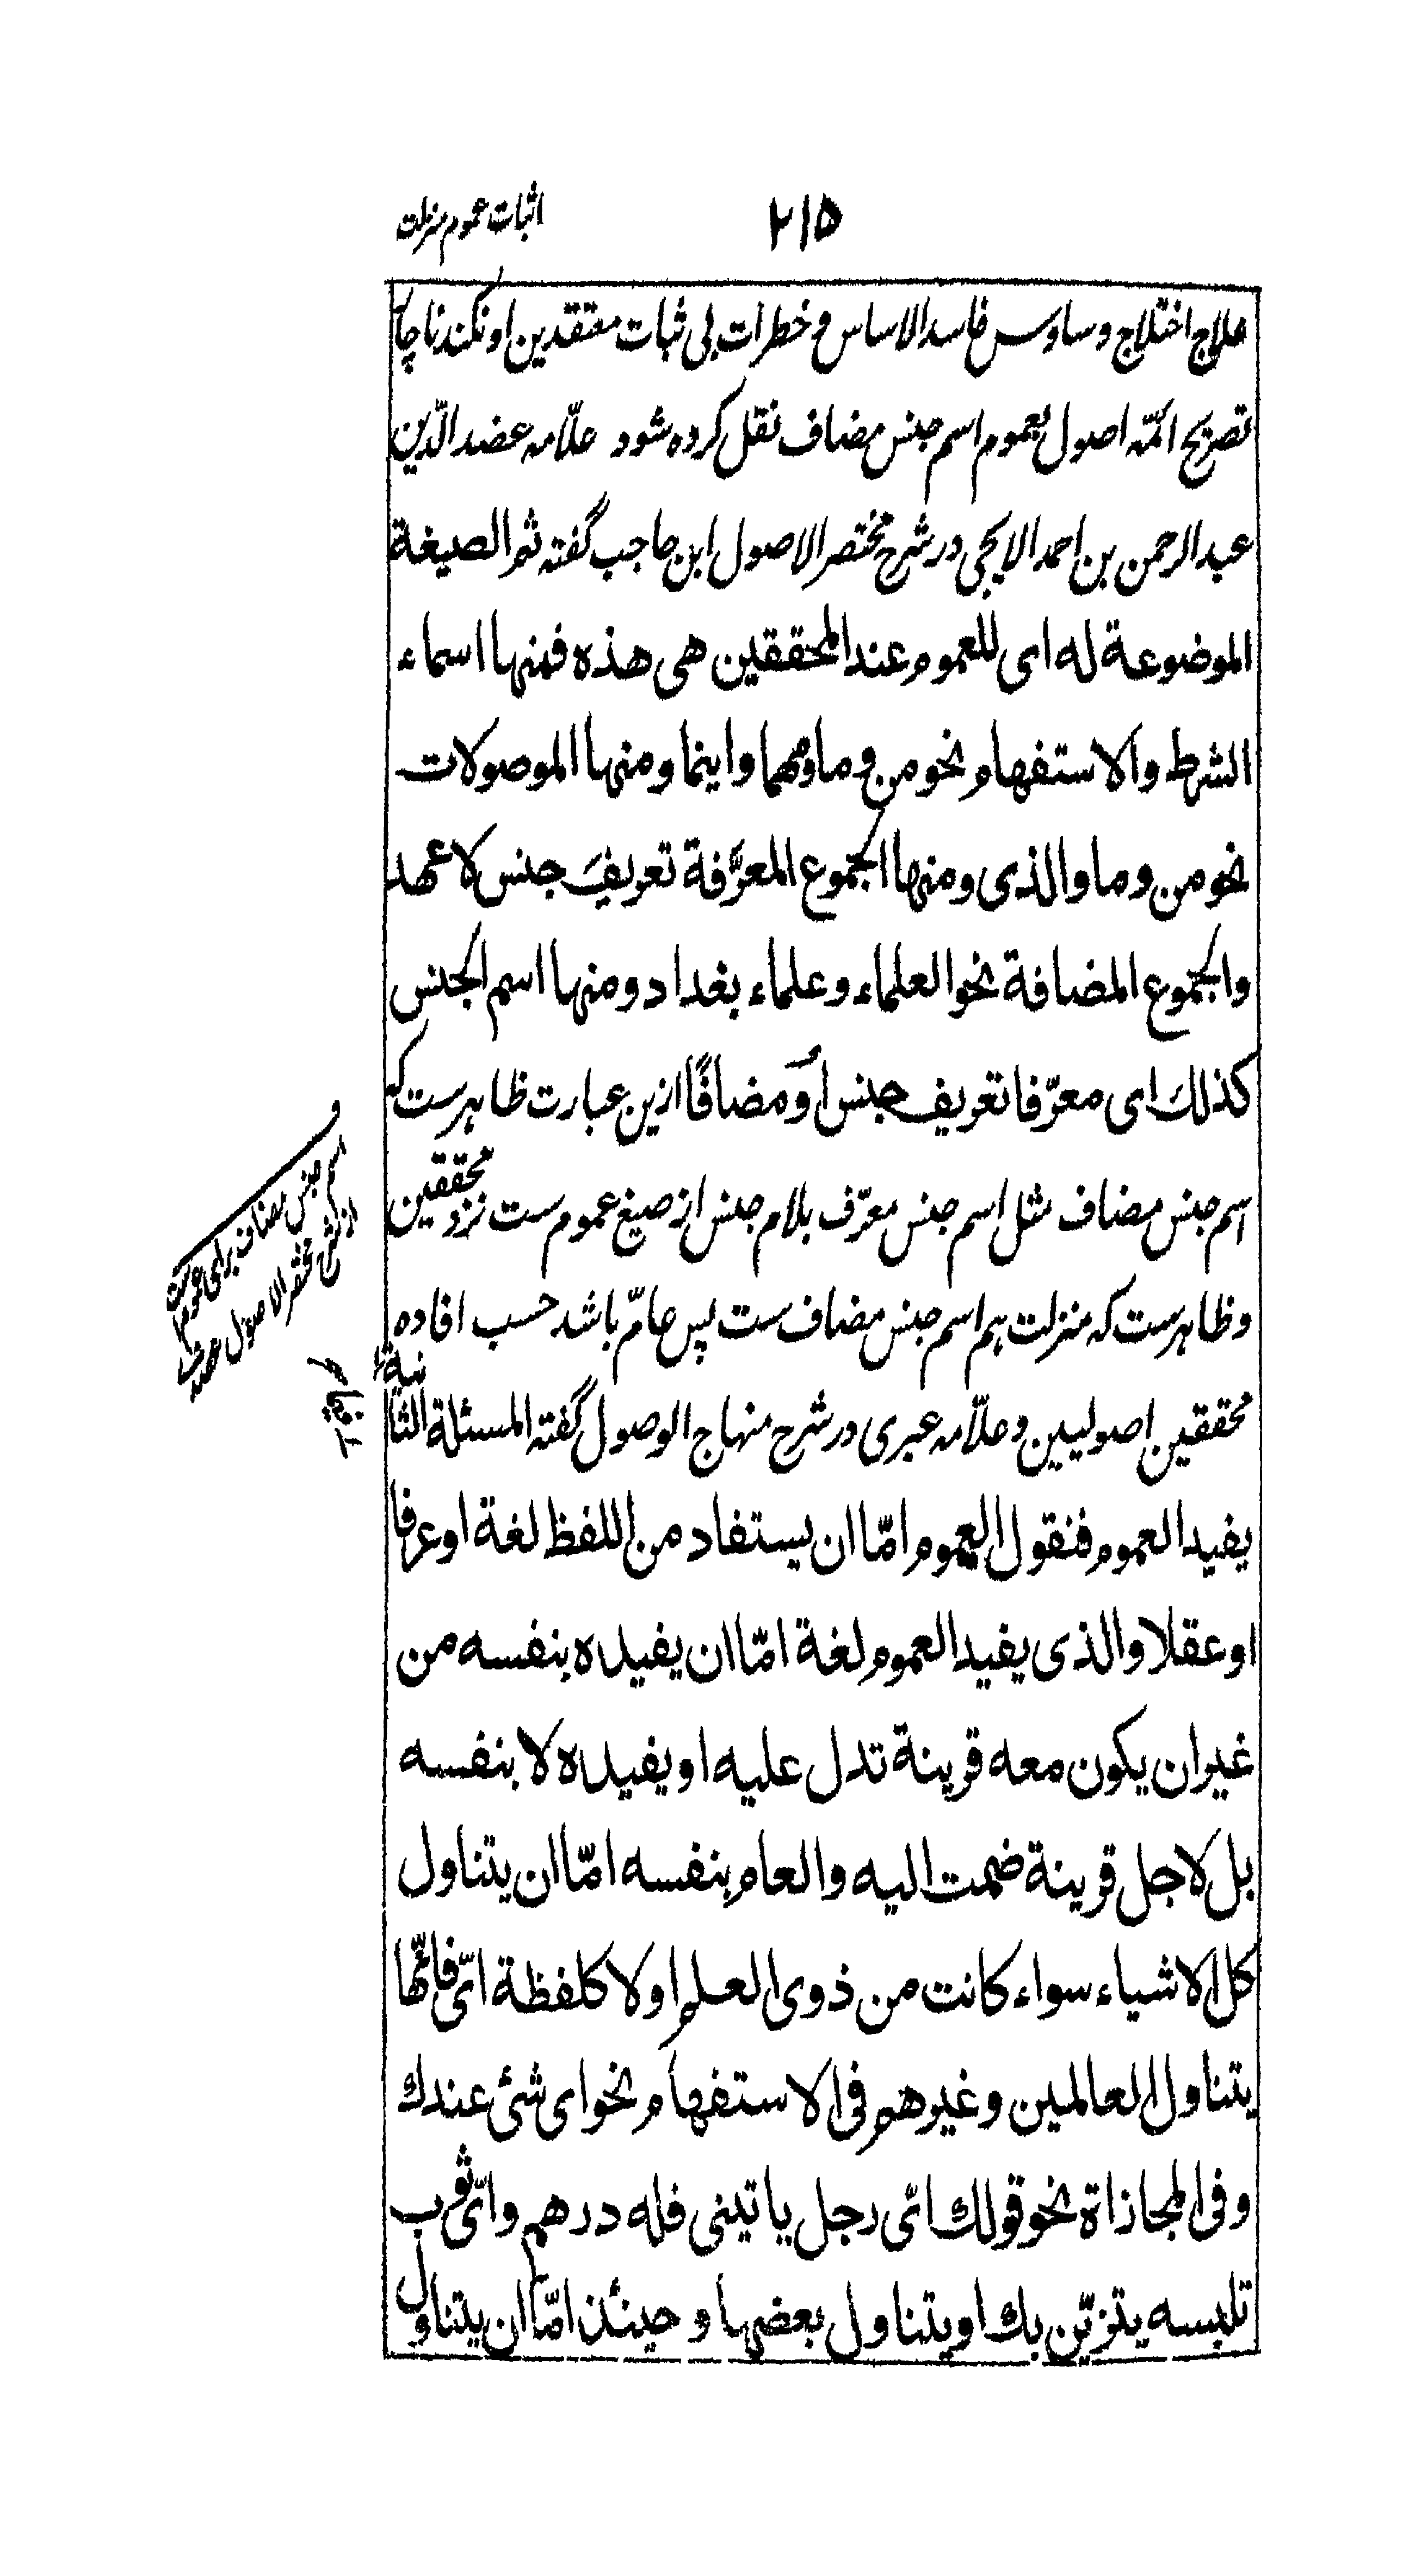 ۲۱۵
اثبات عموم منزلت
علاج اختلاج وساوس فاسد الاساس و خطرات بی ثبات معتقدین او نکند ناچار
تصریح ائمّه اصول بعموم اسم جنس مضاف نقل کرده شود علّامه عضد الدّین
عبد الرحمن بن احمد الایجی در شرح مختصر الاصول ابن حاجب گفته ثم الصیغة
الموضوعة له ای للعموم عند المحققین هی هذه فمنها اسماء
الشرط والاستفهام نحو من وما ومهما واینما ومنها الموصولات
نحو من وما والذی ومنها الجموع المعرَّفة تعریفَ جنس لا عهد
والجموع المضافة نحو العلماء وعلماء بغداد ومنها اسم الجنس
کذلک ای معرّفا تعریف جنس او مضافًا ازین عبارت ظاهرست که
اسم جنس مضاف مثل اسم جنس معرّف بلام جنس از صیغ عموم ست نزد محققین
وظاهرست که منزلت هم اسم جنس مضاف ست پس عامّ باشد حسب افاده
محققین اصولیین و علّامه عبری در شرح منهاج الوصول گفته المسئلة الثانیة
یفید العموم فنقول العموم امّا ان یستفاد من اللفظ لغة او عرفا
او عقلا والذی یفید العموم لغة امّا ان یفیده بنفسه من
غیر ان یکون معه قرینة تدل علیه او یفیده لا بنفسه
بل لاجل قرینة ضمت الیه والعام بنفسه امّا ان یتناول
کل الاشیاء سواء کانت من ذوی العلم او لا کلفظة ایّ فانّها
یتناول العالمین وغیرهم فی الاستفهام نحو ای شئ عندک
وفی المجازاة نحو قولک ایّ رجل یاتینی فله درهم وایّ ثوب
تلبسه یتزیّن بک او یتناول بعضها و حینئذ امّا ان یتناول
اسم جنس مضاف برای عموم ست
از شرح مختصر الاصول عضدی